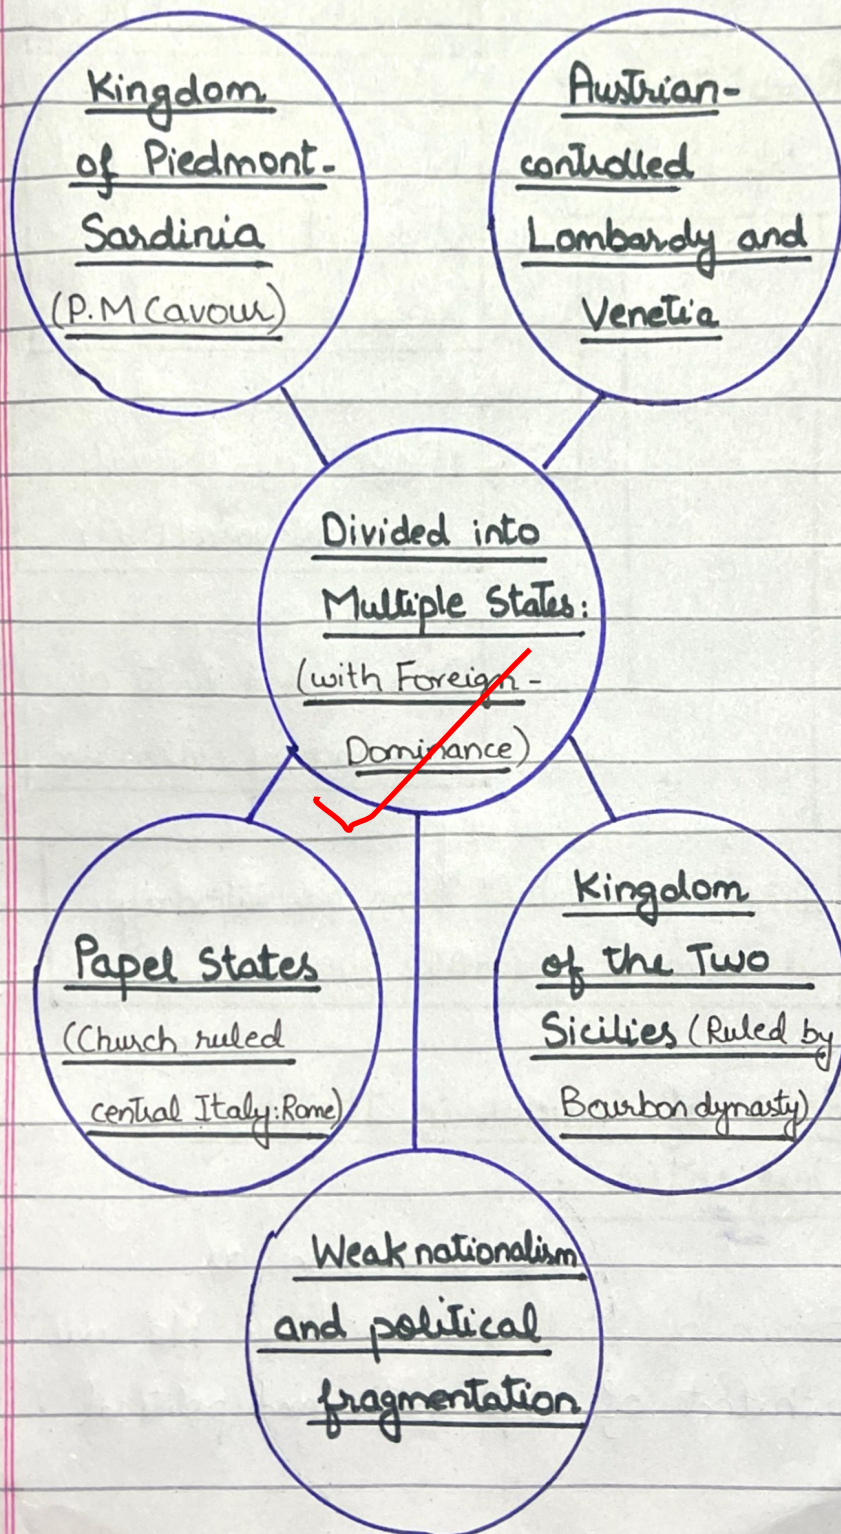 Kingdom
of Piedmont-
Sardinia
(P.M Cavour)
Austrian-
controlled
Lombardy and
Venetia
Divided into
Multiple States:
(with Foreign-
Dominance)
Papel States
(Church ruled
central Italy:Rome)
Kingdom
of the Two
Sicilies (Ruled by
Bourbon dynasty)
Weak nationalism
and political
fragmentation